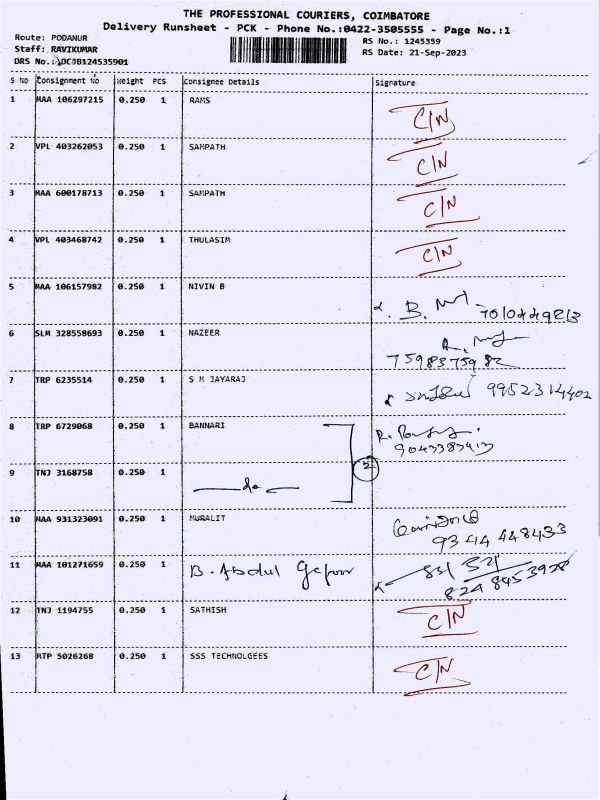 THE PROFESSIONAL COURIERS, COIMBATORE
Delivery Runsheet - PCK - Phone No.:0422-3505555 - Page No.:1
Route: PODANUR
RS No.: 1245359
Staff: RAVIKUMAR
RS Date: 21-Sep-2023
S NO Consignment No Weight PCS Consignee Details Signature
1 MAA 106297215 0.250 1 RAMS C/N
2 VPL 403262053 0.250 1 SAMPATH C/N
3 MAA 600178713 0.250 1 SAMPATH C/N
4 VPL 403468742 0.250 1 THULASIM C/N
5 MAA 106157982 0.250 1 NIVIN B
6 SLM 328558693 0.250 1 NAZEER
7598375982
7 TRP 6235514 0.250 1 S M JAYARAJ 9952314402
8 TRP 6729068 0.250 1 BANNARI
2
9 TNJ 3168758 0.250 1 do
10 MAA 931323091 0.250 1 MURALIT
9344448433
11 MAA 101271659 0.250 1 B. Abdul
8248453928
12 TNJ 1194755 0.250 1 SATHISH C/N
13 MTP 5026268 0.250 1 SSS TECHNOLGEES C/N